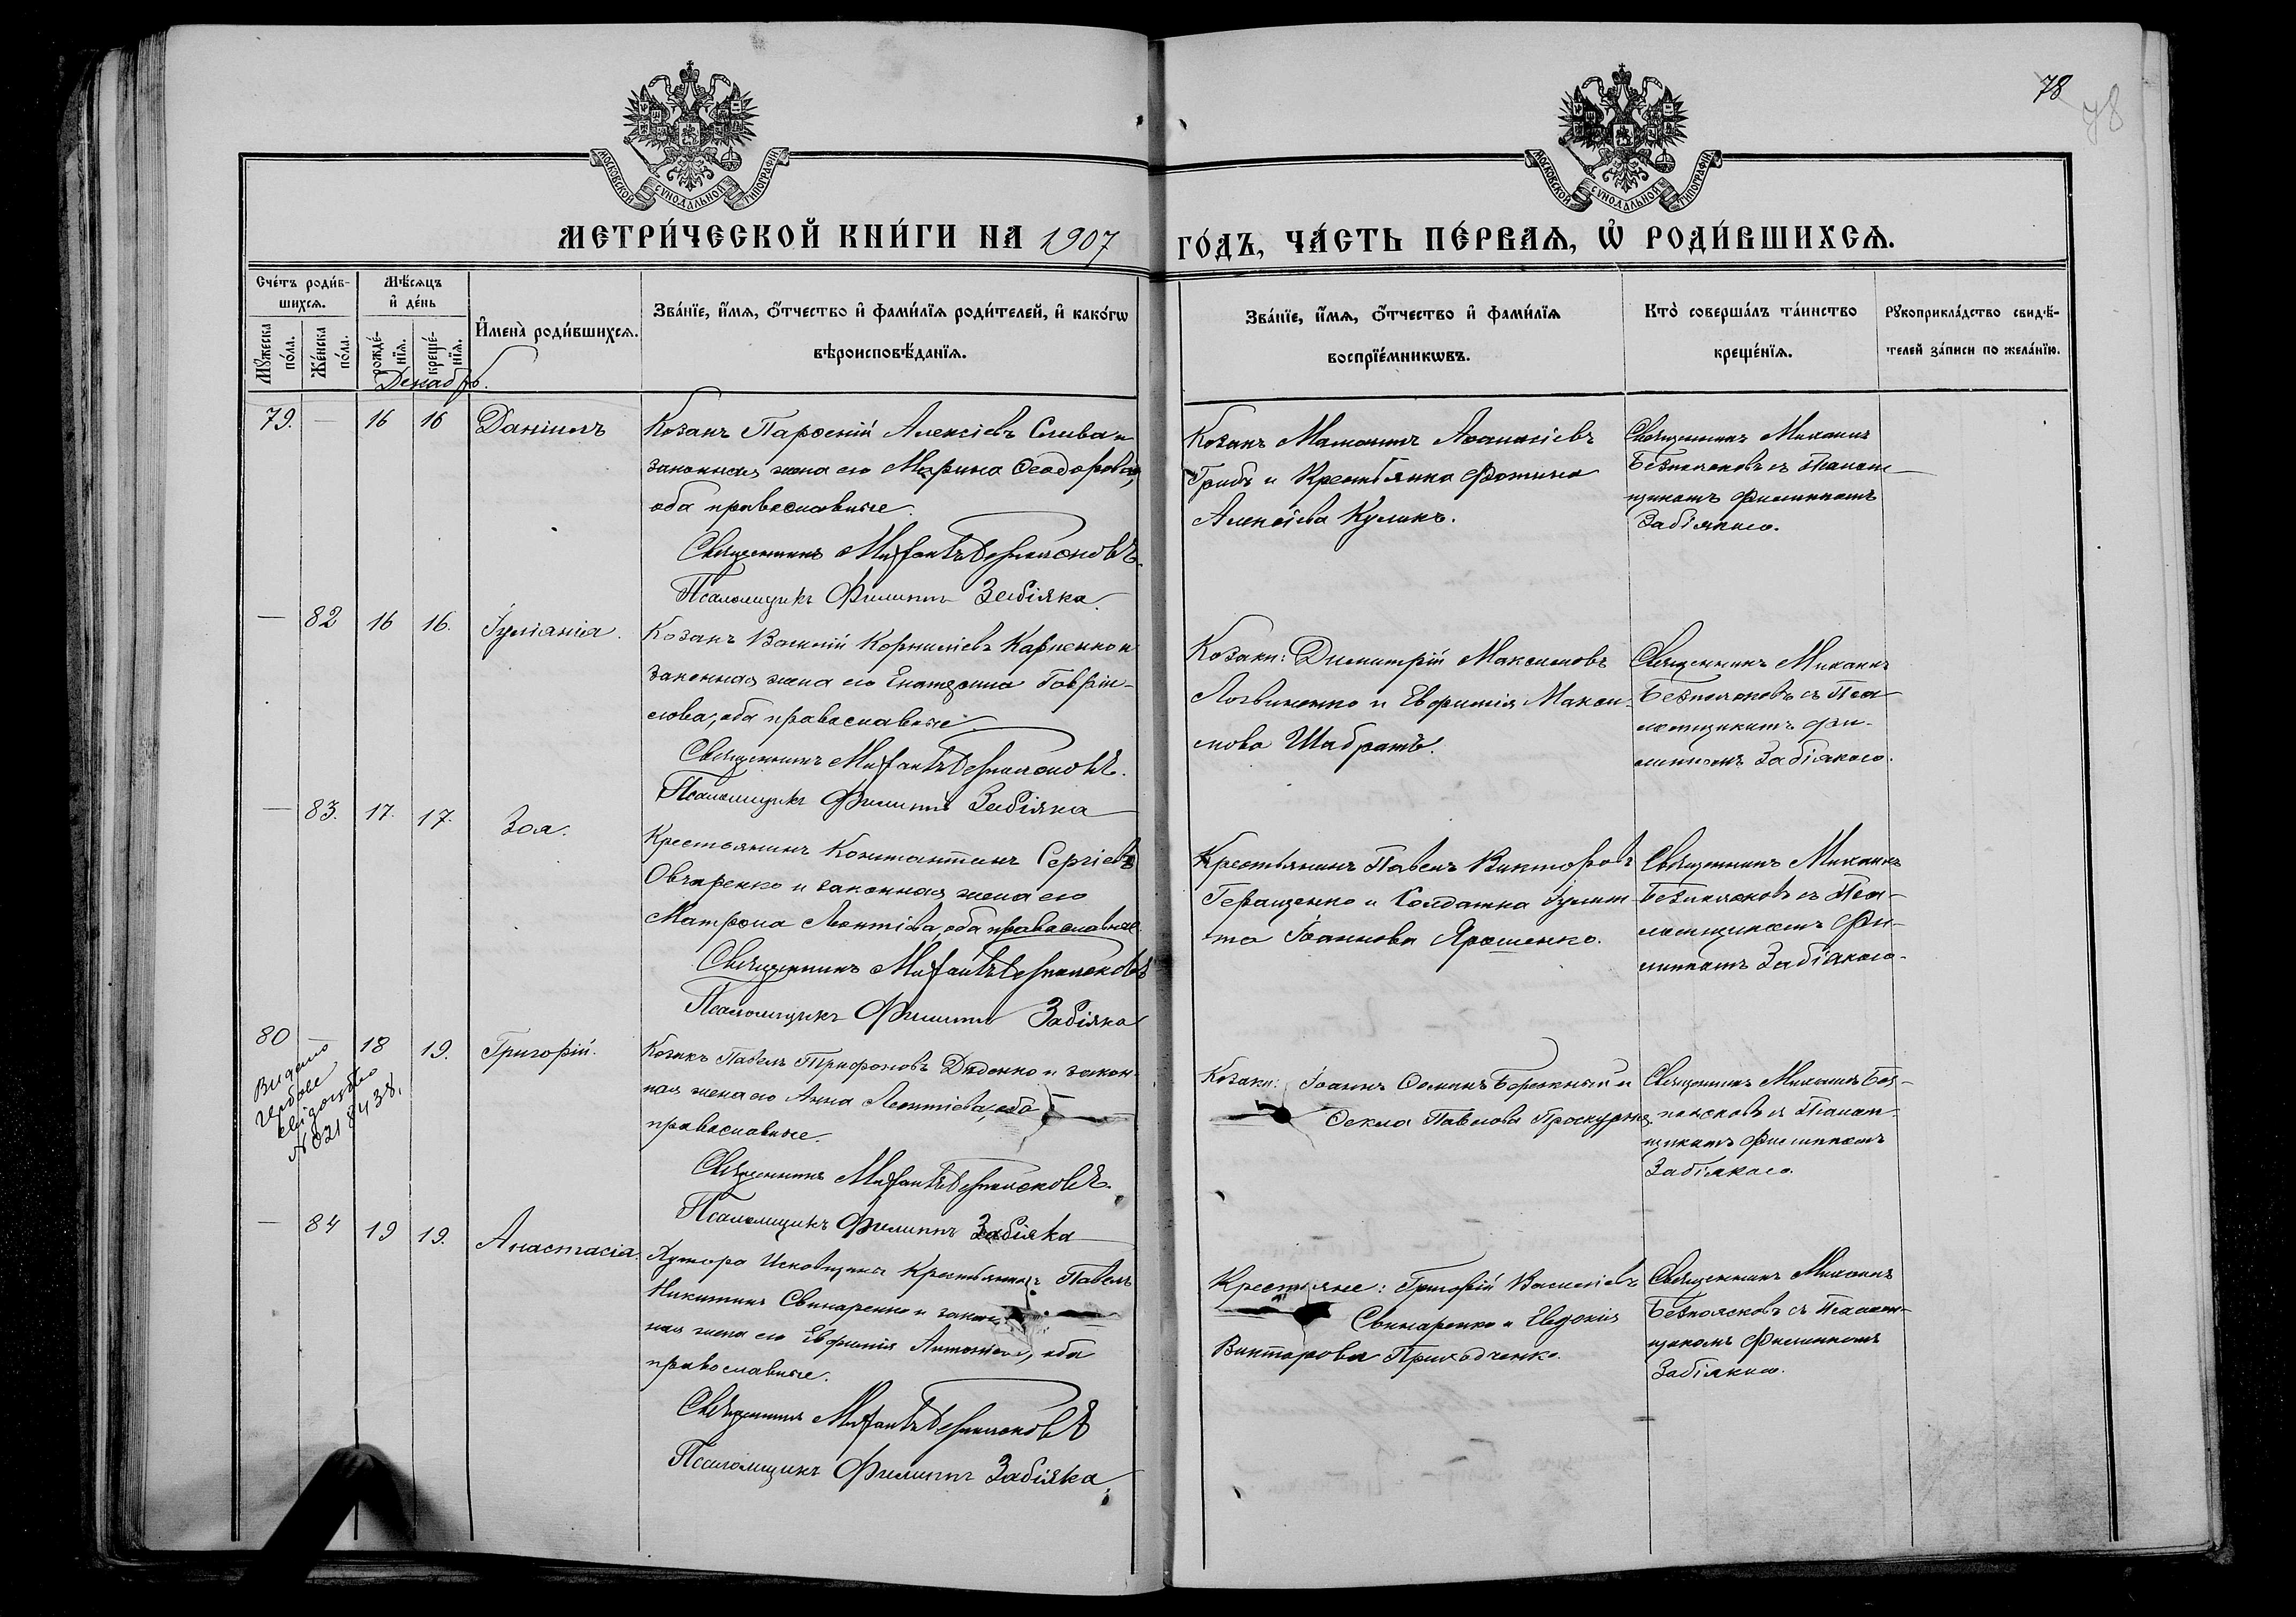 78
78
МОСКОВСКОЙ СѴНОДАЛЬНОЙ ТИПОГРАФІИ
МОСКОВСКОЙ СѴНОДАЛЬНОЙ ТИПОГРАФІИ
МЕТРИ́ЧЕСКОЙ КНИ́ГИ НА 1907
ГО́ДЪ, ЧА́СТЬ ПЕ́РВАѦ, Ѽ РОДИ́ВШИХСѦ.
Сче́тъ роди́в-
шихсѧ.
Мꙋ́жеска по́ла.
Же́нска по́ла.
Мѣ́сѧцъ
и҆ де́нь
рожде́-
нїѧ.
креще́-
нїѧ.
И҆мена̀ роди́вшихсѧ.
Зва́нїе, и҆́мѧ, ѻ҆́тчество и҆ фами́лїѧ роди́телей, и҆ како́гѡ
вѣроисповѣ́данїѧ.
Зва́нїе, и҆́мѧ, ѻ҆́тчество и҆ фами́лїѧ
воспрїе́мникѡвъ.
Кто̀ соверша́лъ та́инство
креще́нїѧ.
Рꙋкоприкла́дство свидѣ́-
телей за́писи по жела́нїю.
Декабрь.
79. — 16 16 Даніилъ
Козакъ Парѳеній Алексіевъ Слива и
законная жена его Марина Ѳеодорова,
оба православные.
Священникъ Михаилъ Безпоясковъ.
Псаломщикъ Филиппъ Забіяка.
Козакъ Мамонтъ Аѳанасіевъ
Грибъ и Крестьянка Фотина
Алексіева Куликъ.
Священникъ Михаилъ
Безпоясковъ съ Псалом-
щикомъ Филиппомъ
Забіякою.
— 82 16 16. Іуліанія.
Козакъ Василій Корниліевъ Карпенко и
законная жена его Екатерина Гаврі-
илова, оба православные.
Священникъ Михаилъ Безпоясковъ.
Псаломщикъ Филиппъ Забіяка
Козаки: Димитрій Максимовъ
Логвиненко и Евфимія Макси-
мова Шабратъ.
Священникъ Михаилъ
Безпоясковъ съ Пса-
ломщикомъ Фи-
липпомъ Забіякою.
— 83. 17. 17. Зоя.
Крестьянинъ Константинъ Сергіевъ
Овчаренко и законная жена его
Матрона Леонтіева, оба православные.
Священникъ Михаилъ Безпоясковъ
Псаломщикъ Филиппъ Забіяка
Крестьянинъ Павелъ Викторовъ
Геращенко и Солдатка Іулит-
та Іоаннова Ярошенко.
Священникъ Михаилъ
Безпоясковъ съ Пса-
ломщикомъ Фи-
липпомъ Забіякою.
80 — 18 19. Григорій.
Видано
свідоцтво
№ 0218438.
Козакъ Павелъ Трифоновъ Диденко и закон-
ная жена его Анна Леонтіева, оба
православные.
Священникъ Михаилъ Безпоясковъ.
Псаломщикъ Филиппъ Забіяка
Козаки: Іоаннъ и
Ѳекла Павлова
Священникъ Михаилъ Без-
поясковъ съ Псалом-
щикомъ Филиппомъ
Забіякою.
— 84 19 19. Анастасія.
Хутора Крестьянинъ Павелъ
Никитинъ Свинаренко и закон-
ная жена его Евфимія Антоніева, оба
православные.
Священникъ Михаилъ Безпоясковъ
Псаломщикъ Филиппъ Забіяка.
Крестьяне: Григорій Василіевъ
Свинаренко и Евдокія
Викторова Приходченко.
Священникъ Михаилъ
Безпоясковъ съ Псалом-
щикомъ Филиппомъ
Забіякою.